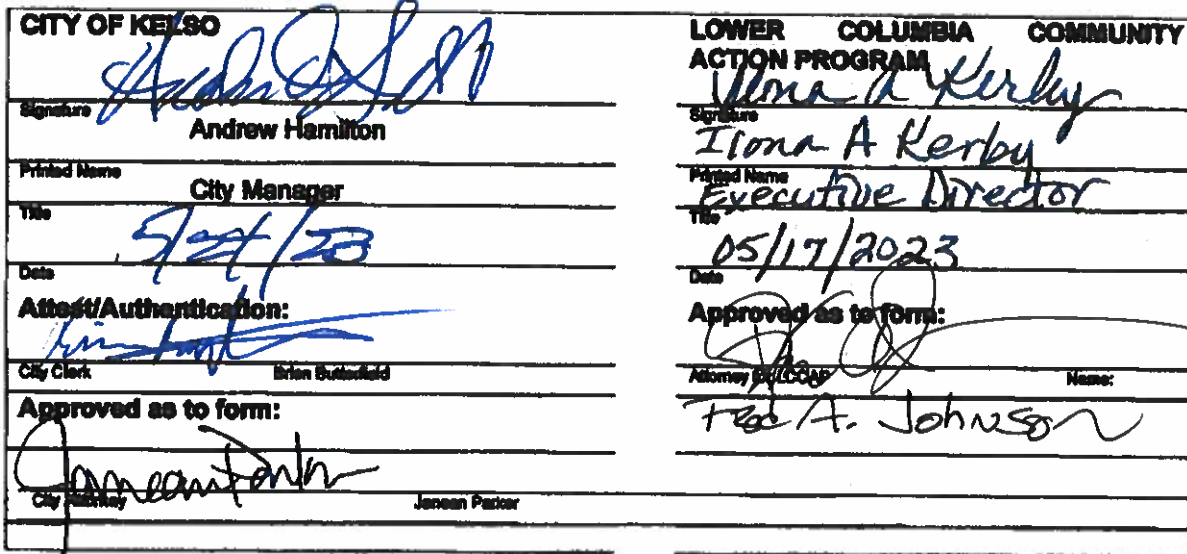 CITY OF KELSO
Signature
Andrew Hamilton
Printed Name
City Manager
Title
5/24/23
Date
Attest/Authentication:
City Clerk Brian Butterfield
Approved as to form:
City Attorney Janean Parker
LOWER COLUMBIA COMMUNITY
ACTION PROGRAM
Ilona A Kerby
Signature
Ilona A Kerby
Printed Name
Executive Director
Title
05/17/2023
Date
Approved as to form:
Attorney LCCAP Name:
A. Johnson